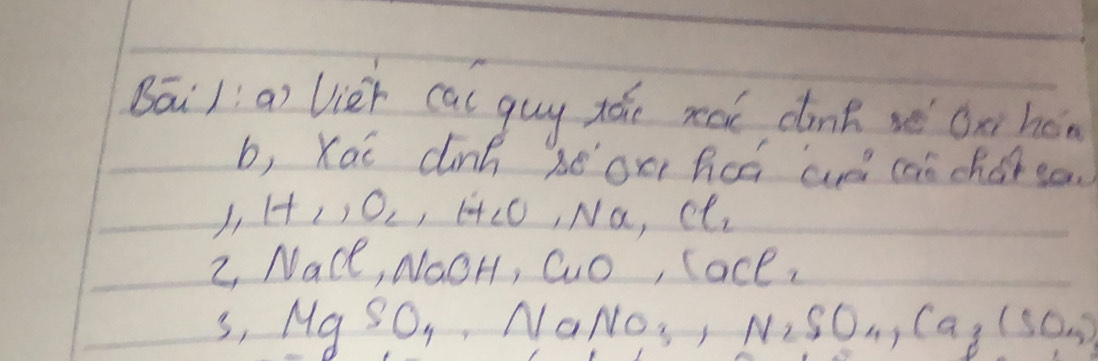 Bài 1: a) Viết các quy tắc xác định số oxi hóa
b, Xác định số oxi hoá của các chất sau
1, H₂, O₂, H₂O, Na, Cl₂
2, NaCl, NaOH, CuO, CaCl₂
3, MgSO₄, NaNO₃, N₂SO₄, Ca₃(SO₄)